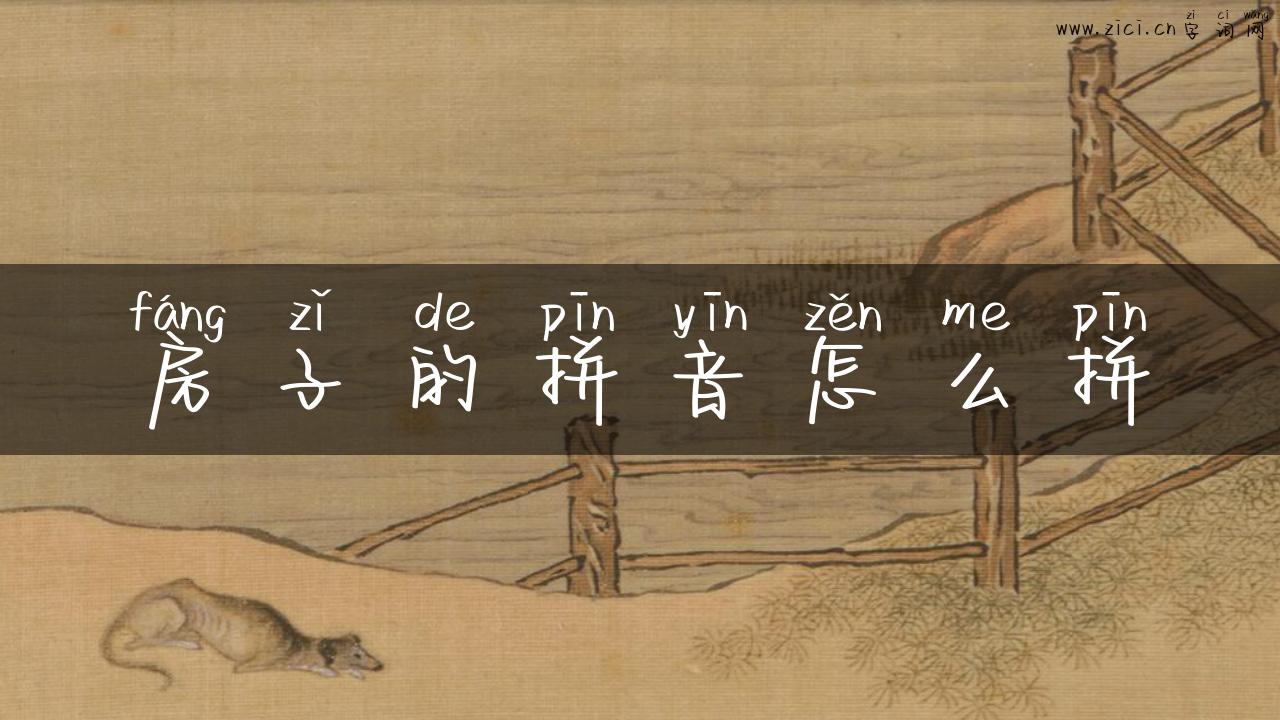 zi ci wang
www.zici.cn 字词网
fáng zǐ de pīn yīn zěn me pīn
房子的拼音怎么拼